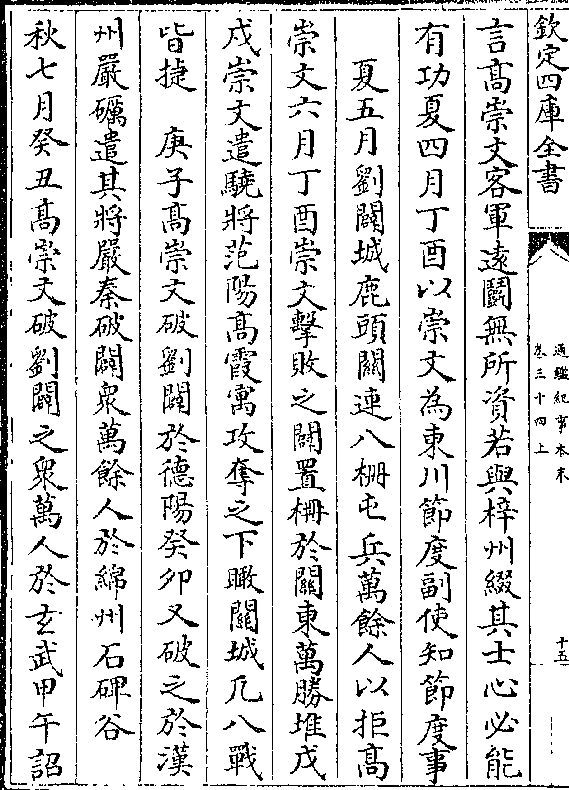 欽定四庫全書
通鑑紀事本末
卷三十四上
十五
言高崇文客軍逺鬭無所資若與梓州綴其士心必能
有功夏四月丁酉以崇文為東川節度副使知節度事
夏五月劉闢城鹿頭關連八柵屯兵萬餘人以拒高
崇文六月丁酉崇文擊敗之闢置柵於關東萬勝堆戊
戌崇文遣驍將范陽高霞寓攻奪之下瞰關城凡八戰
皆捷　庚子高崇文破劉闢於德陽癸卯又破之於漢
州嚴礪遣其將嚴秦破闢衆萬餘人於綿州石碑谷
秋七月癸丑高崇文破劉闢之衆萬人於玄武甲午詔